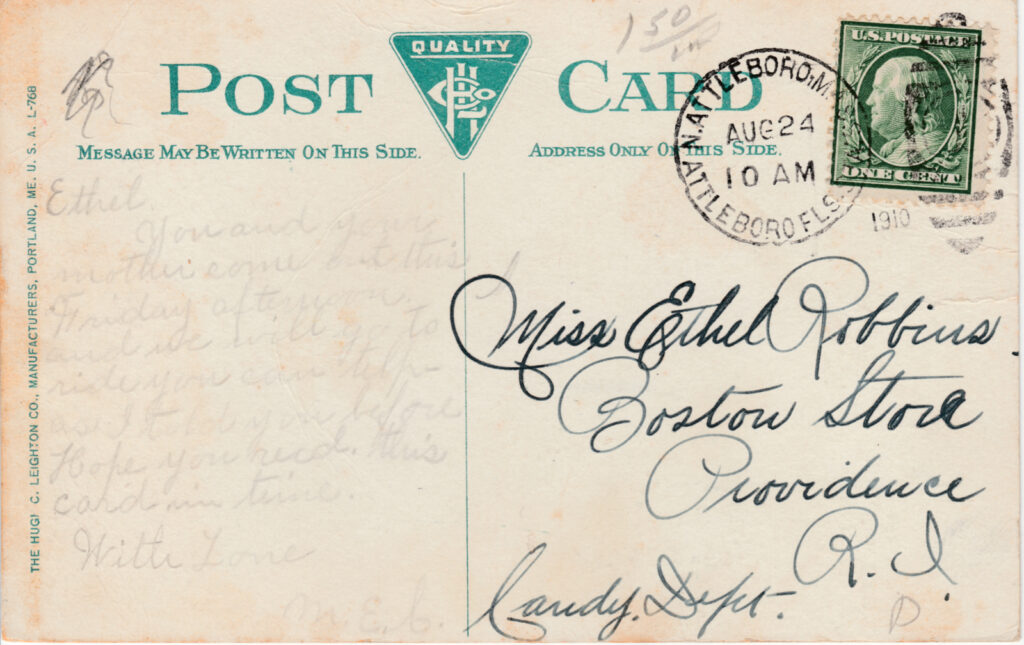 THE HUGH C. LEIGHTON CO., MANUFACTURERS, PORTLAND, ME. U. S. A. L-768
POST CARD
QUALITY
MESSAGE MAY BE WRITTEN ON THIS SIDE.
ADDRESS ONLY ON THIS SIDE.
150
N. ATTLEBORO, M
AUG 24
10 AM
ATTLEBORO FLS.
1910
U.S. POSTAGE
ONE CENT
Ethel.
You and your
mother come out this
Friday afternoon
and we will go to
ride you can
as I told you before
Hope you recd. this
card in time.
With Love
M. E. C.
Miss Ethel Robbins.
Boston Store
Providence
R. I.
Candy. Dept.
D